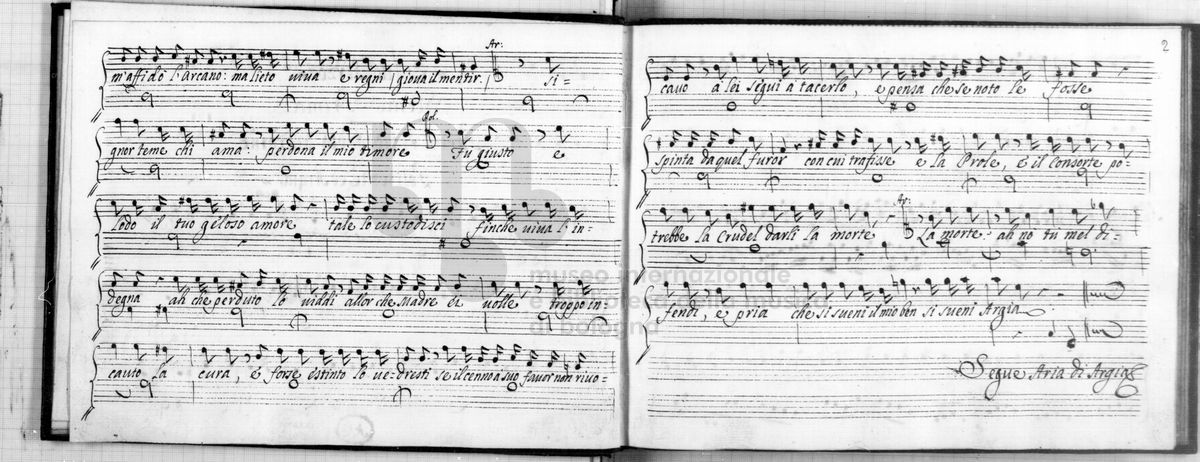 Ar:
m'affido l'Arcano: ma lieto viva e regni giova il mentir. Si=
Pol.
gnor teme chi ama: perdona il mio timore Tu giusto e
lodo il tuo geloso amore tale lo custodisci finche viva l'in=
degna ah che perduto lo viddi allor che Madre di volle troppo in=
cauto la cura, e forse estinto lo ve=dresti se il cenno a suo favor non rivo=
museo internazionale
e biblioteca della musica
di bologna
2
cavo a lei segui a tacerlo, e pensa che se noto le fosse
spinta da quel furor con cui trafisse e la Prole, e il Consorte po=
Ar:
trebbe la Crudel darli la morte, La morte: ah no tu mel di=
fendi, e pria che si sveni il mio ben si sveni Argia.
Segue Aria di Argia